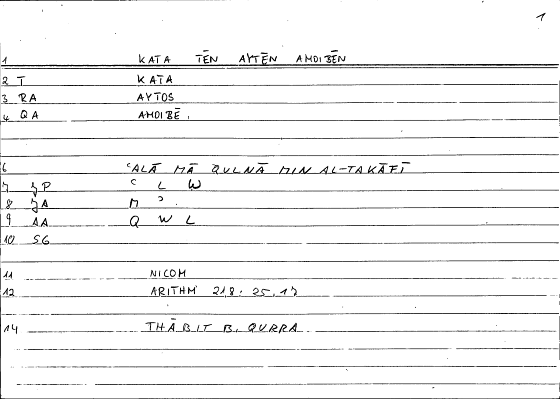 1
1 KATA TĒN AYTĒN AMOIBĒN
2 T KATA
3 RA AYTOS
4 QA AMOIBĒ.
6 ʿALĀ MĀ QULNĀ MIN AL-TAKĀFĪ
7 JP ʿ L W
8 JA M ʾ
9 AA Q W L
10 SG
11 NICOM
12 ARITHM 218. 25. 17
14 THĀBIT B. QURRA